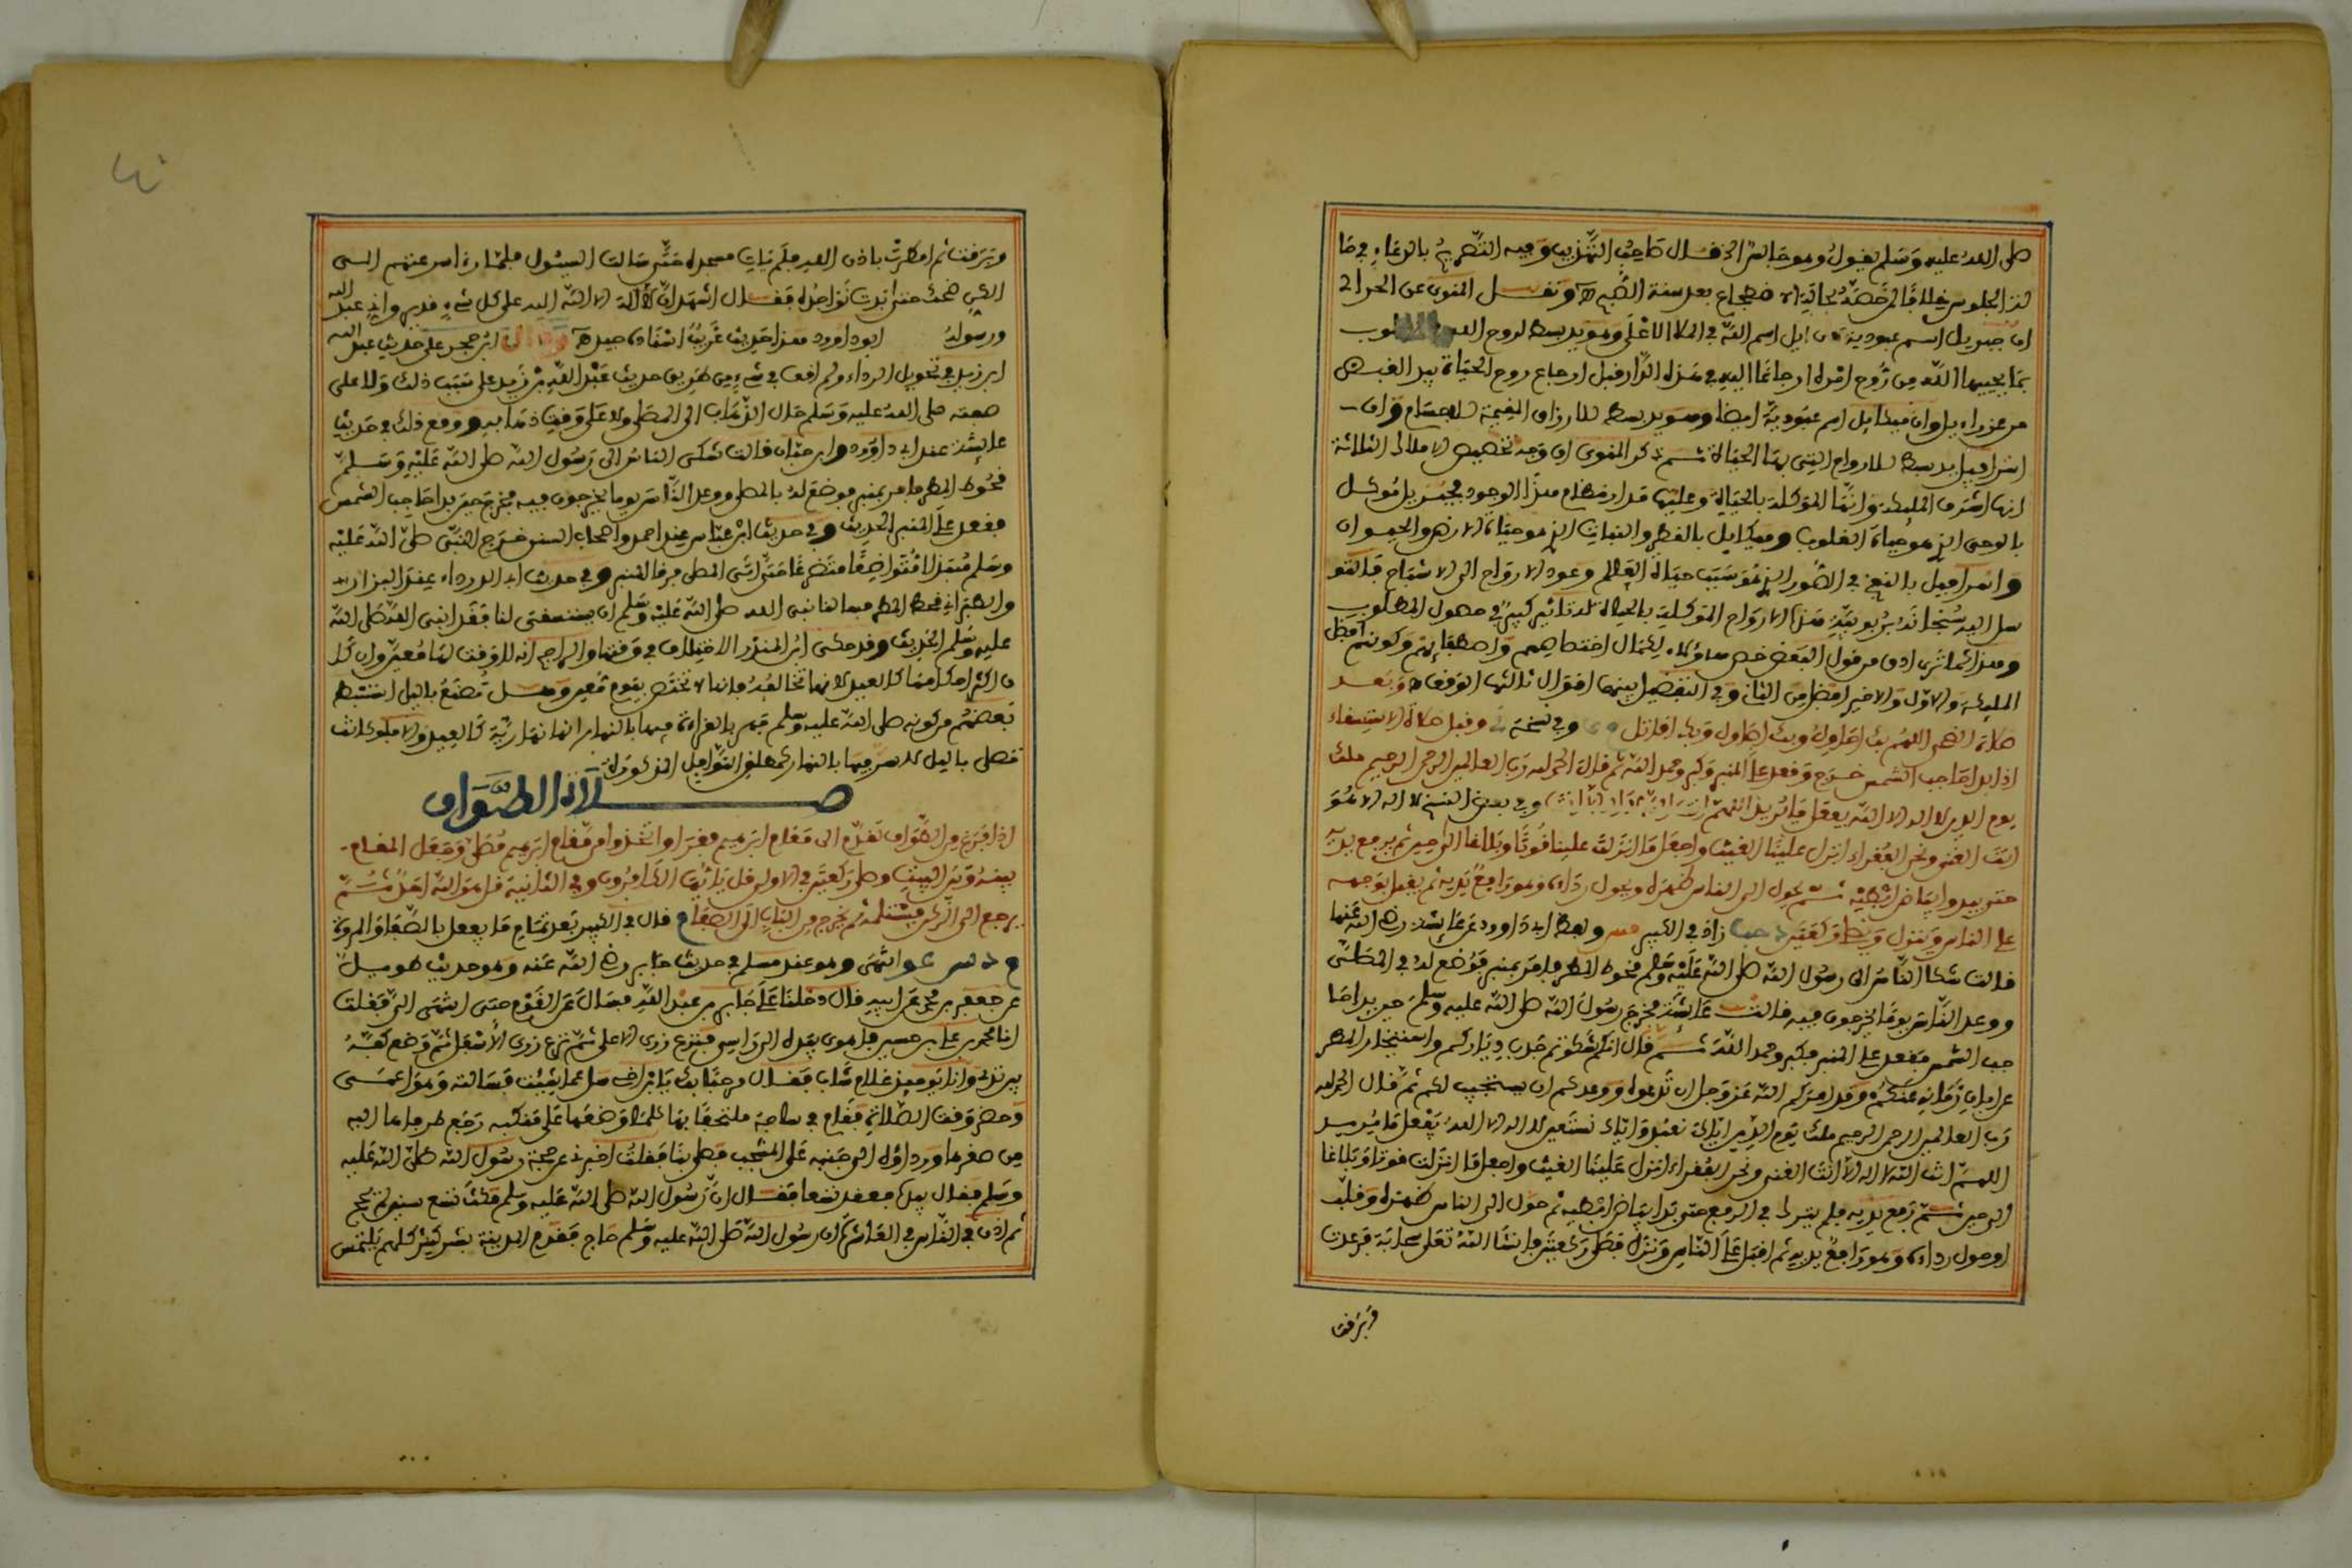 صلى الله عليه وسلم يقول وهو جالس قال صاحب وفيه التصريح بالدعاء في
هذا الجلوس خلافا لمن خصه بحالة الاضطجاع بعد سنة الصبح ونقل المنوي عن الحرالي
ان جبريل اسم عبودية لان ايل اسم الله في الملا الاعلى وهو يد بسط لروح الله
بما يحييها الله من روح امره ارجاعا اليه في هذه الدار قبل ارجاع روح الحياة بيد القبض
من عزراءيل وان ميكاءيل اسم عبودية ايضا وهو يد بسط للارزاق المقيمة للاجسام وان
اسرافيل يد بسط للارواح التي بها الحياة ثم ذكر المنوي ان وجه تخصيص الاملاك الثلاثة
انها اشرف الملئكة وانها الموكلة بالحياة وعليها مدار نظام هذا الوجود فجبريل موكل
بالوحي الذي هو حياة القلوب وميكاءيل بالقطر والنبات الذي هو حياة الارض والحيوان
واسرافيل بالنفخ في الصور الذي هو سبب حياة العالم وعود الارواح الى الاشباح فالتو
سل اليه سبحانه بربوبية هذه الارواح الموكلة بالحياة له تاثير كبير في حصول المطلوب
وهذا كما ترى ادق من قول البعض خص هاؤلاء لكمال اختصاصهم واصطفاءهم وكونهم افضل
الملئكة والاول والاخير افضل من الثاني وفي التفضيل بينهما اقوال ثالثها الوقف وبعد
صلاة الضحى اللهم بك احاول وبك اصاول وبك اقاتل ى وفي نسخة وقبل صلاة الاستسقاء
اذا بدا حاجب الشمس خرج وقعد على المنبر وكبر وحمد الله ثم قال الحمد لله رب العالمين الرحمن الرحيم ملك
يوم الدين لا اله الا الله يفعل ما يريد اللهم وفي بعض النسخ لا اله الا هو
انت الغني ونحن الفقراء انزل علينا الغيث واجعل ما انزلت علينا قوتا وبلاغا الى حين ثم يرفع يديه
حتى يبدو بياض ابطيه ثم يحول الى الناس ظهره ويحول رداءه وهو رافع يديه ثم يقبل بوجهه
على الناس وينزل ويصلي ركعتين د حب زاد في الكبير مس ولفظ ابي داوود عن عائشة رضي الله عنها
قالت شكا الناس الى رسول الله صلى الله عليه وسلم قحوط المطر فامر بمنبر فوضع له في المصلى
ووعد الناس يوما يخرجون فيه قالت عائشة فخرج رسول الله صلى الله عليه وسلم حين بدا حا
جب الشمس فقعد على المنبر فكبر وحمد الله ثم قال انكم شكوتم جدب دياركم واستيخار المطر
عن ابان زمانه عنكم وقد امركم الله عز وجل ان تدعوه ووعدكم ان يستجيب لكم ثم قال الحمد لله
رب العالمين الرحمن الرحيم ملك يوم الدين اياك نعبد واياك نستعين لا اله الا الله يفعل ما يريد
اللهم انت الله لا اله الا انت الغني ونحن الفقراء انزل علينا الغيث واجعل ما انزلت قوة وبلاغا
الى حين ثم رفع يديه فلم يزل في الرفع حتى بدا بياض ابطيه ثم حول الى الناس ظهره وقلب
او حول رداءه وهو رافع يديه ثم اقبل على الناس ونزل فصلى ركعتين فانشا الله تعلى سحابة فرعدت
وبرقت
وبرقت ثم امطرت باذن الله فلم يات مسجده حتى سالت السيول فلما راى سرعتهم الى
الكن ضحك حتى بدت نواجذه فقال اشهد ان لا اله الا الله على كل شيء قدير واني عبد الله
ورسوله ابو داوود هذا حديث غريب اسناده جيد وقال ابن حجر على حديث عبد الله
ابن زيد في تحويل الرداء ولم اقف في شيء من طريق حديث عبد الله بن زيد على سبب ذلك ولا على
صفته صلى الله عليه وسلم حال الذهاب الى المصلى ولا على وقت ذهابه ووقع ذلك في حديث
عائشة عند ابي داوود وابن حبان قالت شكى الناس الى رسول الله صلى الله عليه وسلم
قحوط المطر فامر بمنبر فوضع له بالمصلى ووعد الناس يوما يخرجون فيه فخرج حين بدا حاجب الشمس
فقعد على المنبر الحديث وفي حديث ابن عباس عند احمد واصحاب السنن خرج النبي صلى الله عليه
وسلم متبذلا متواضعا متضرعا حتى اتى المصلى فرقا المنبر وفي حديث ابي الدرداء عند البزار
والطبراني قحط المطر فسالنا نبي الله صلى الله عليه وسلم ان يستسقي لنا فغدا نبي الله صلى الله
عليه وسلم الحديث وقد حكى ابن المنذر الاختلاف في وقتها والراجح انه لا وقت لها معين وان كا
ن اكثر احكامها كالعيد لانها تخالفه فانها لا تختص بيوم معين وهل تصنع بالليل استنبط
بعضهم من كونه صلى الله عليه وسلم جهر بالقراءة فيها بالنهار انها نهارية كالعيد والا فلو كانت
تصلى بالليل لاسر فيها بالنهار كمطلق النوافل المذكورة
صلاة الطواف
اذا فرغ من الطواف تقدم الى مقام ابرهيم فقرا واتخذوا من مقام ابرهيم مصلى وجعل المقام
بينه وبين البيت وصلى ركعتين في الاولى قل يايها الكافرون وفي الثانية قل هو الله احد ثم
يرجع الى الركن فيستلمه ثم يخرج من الباب الى الصفا م قال في الكبير بعد تمام ما يفعل بالصفا والمروة
م د س عو انتهى وهو عند مسلم في حديث جابر رضي الله عنه وهو حديث طويل
عن جعفر بن محمد عن ابيه قال دخلنا على جابر بن عبد الله فسال عن القوم حتى انتهى الي فقلت
انا محمد بن علي بن حسين فاهوى بيده الى راسي فنزع زري الاعلى ثم نزع زري الاسفل ثم وضع كفه
بين ثديي وانا يومئذ غلام شاب فقال مرحبا بك يابن اخي سل عما شئت فسالته وهو اعمى
وحضر وقت الصلاة فقام في ساجة ملتحفا بها كلما وضعها على منكبه رجع طرفاها اليه
من صغرها ورداؤه الى جنبه على المشجب فصلى بنا فقلت اخبرني عن حجة رسول الله صلى الله عليه
وسلم فقال بيده فعقد تسعا فقال ان رسول الله صلى الله عليه وسلم مكث تسع سنين لم يحج
ثم اذن في الناس في العاشرة ان رسول الله صلى الله عليه وسلم حاج فقدم المدينة بشر كثير كلهم يلتمس